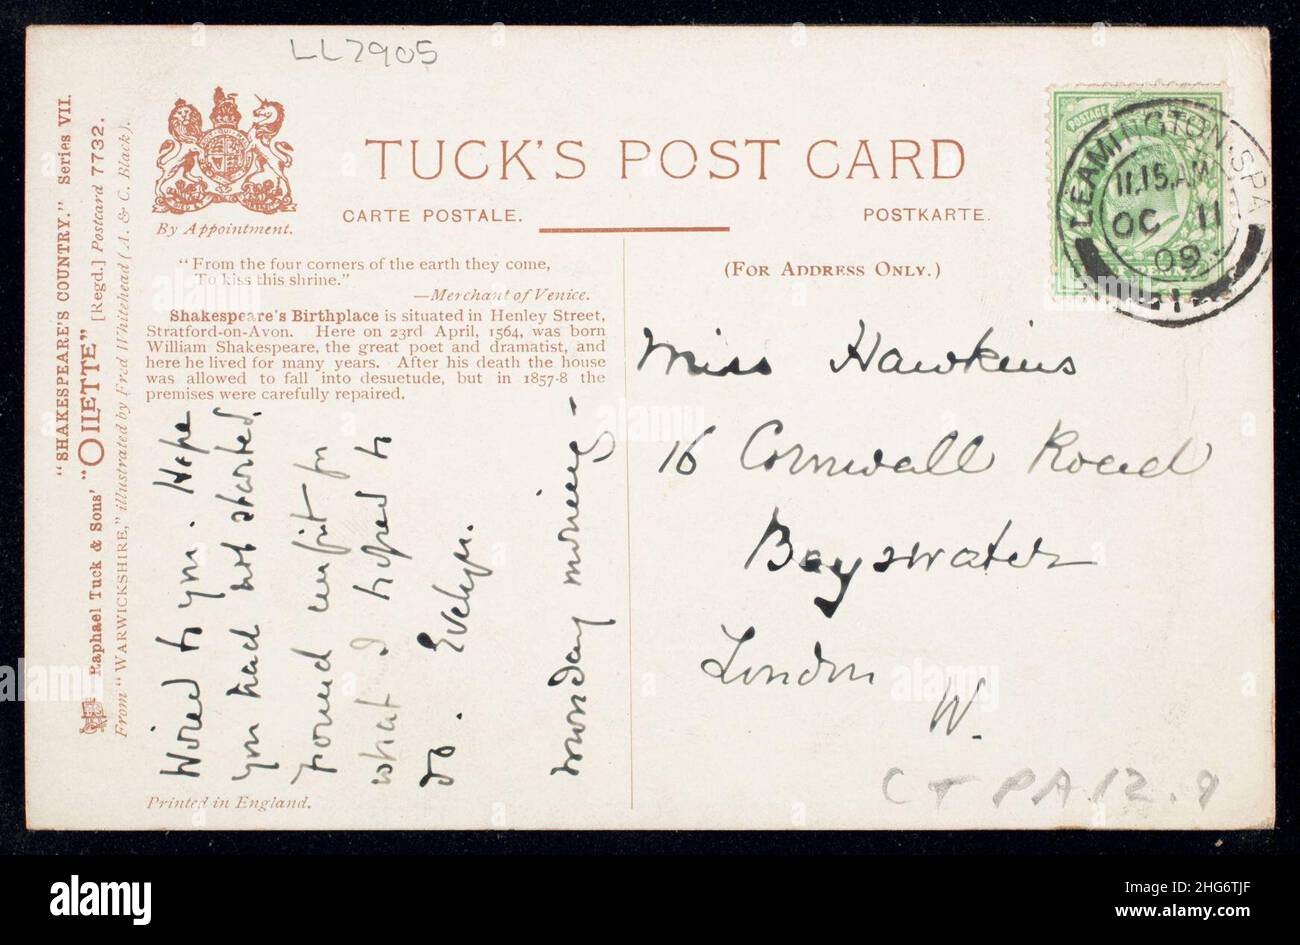 LL7905
TUCK'S POST CARD
CARTE POSTALE.
POSTKARTE.
By Appointment.
(FOR ADDRESS ONLY.)
"From the four corners of the earth they come,
To kiss this shrine."
—Merchant of Venice.
Shakespeare's Birthplace is situated in Henley Street,
Stratford-on-Avon. Here on 23rd April, 1564, was born
William Shakespeare, the great poet and dramatist, and
here he lived for many years. After his death the house
was allowed to fall into desuetude, but in 1857-8 the
premises were carefully repaired.
Wired to you. Hope
you had not started.
Found unfit for
what I hoped to
do. Evelyn.
Monday morning -
Printed in England.
"SHAKESPEARE'S COUNTRY." Series VII.
Raphael Tuck & Sons' "OILETTE" [Regd.] Postcard 7732.
From "WARWICKSHIRE," illustrated by Fred Whitehead (A. & C. Black).
POSTAGE
LEAMINGTON.SPA
11.15.AM
OC 11
09
1
Miss Hawkins
16 Cornwall Road
Bayswater
London
W.
CTPA12.9
alamy
Image ID: 2HG6TJF
www.alamy.com